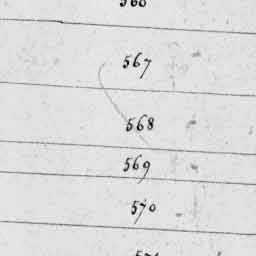 567
568
569
570